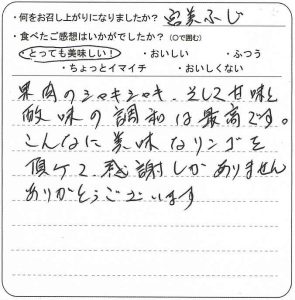 ・何をお召し上がりになりましたか？ 宮美ふじ
・食べたご感想はいかがでしたか？（○で囲む）
・とっても美味しい！ ・おいしい ・ふつう
・ちょっとイマイチ ・おいしくない
果肉のシャキシャキ、そして甘味と
酸味の調和は最高です。
こんなに美味なリンゴを
頂けて感謝しかありません
ありがとうございます